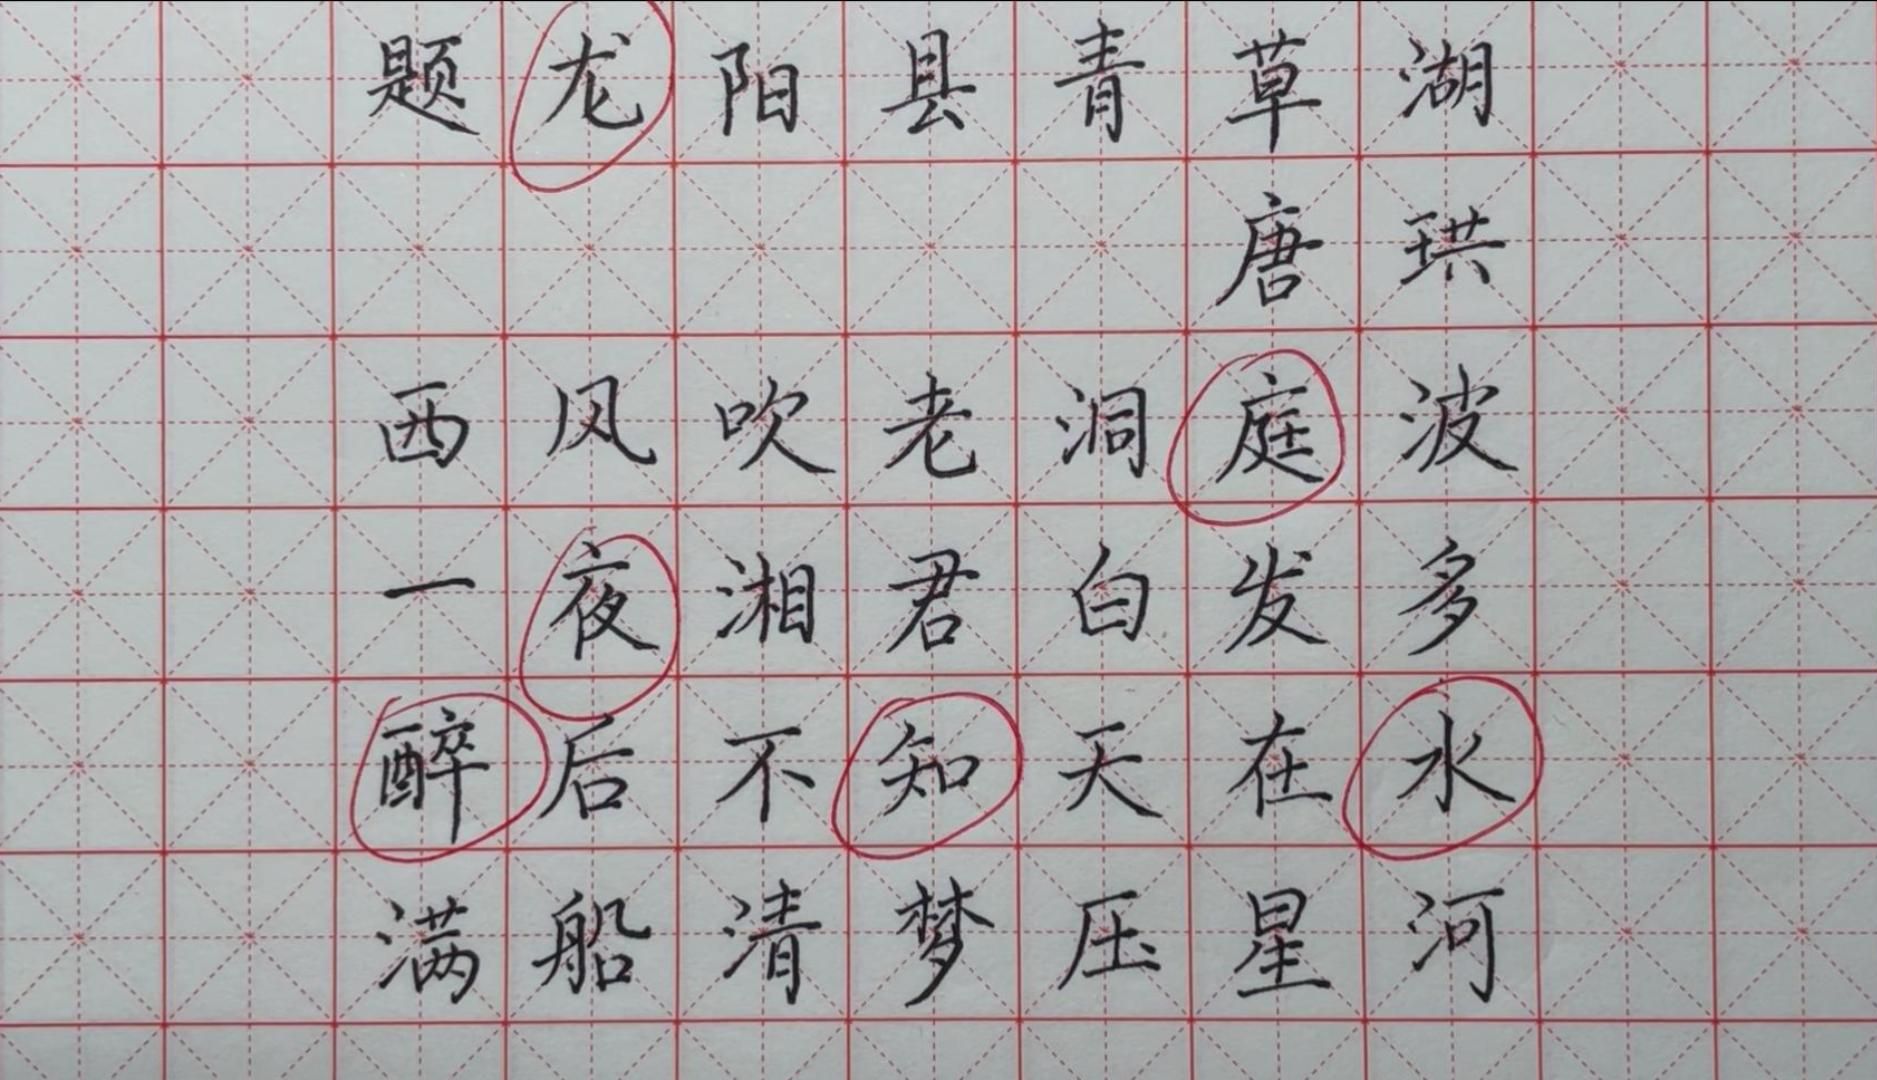 题龙阳县青草湖
唐珙
西风吹老洞庭波
一夜湘君白发多
醉后不知天在水
满船清梦压星河